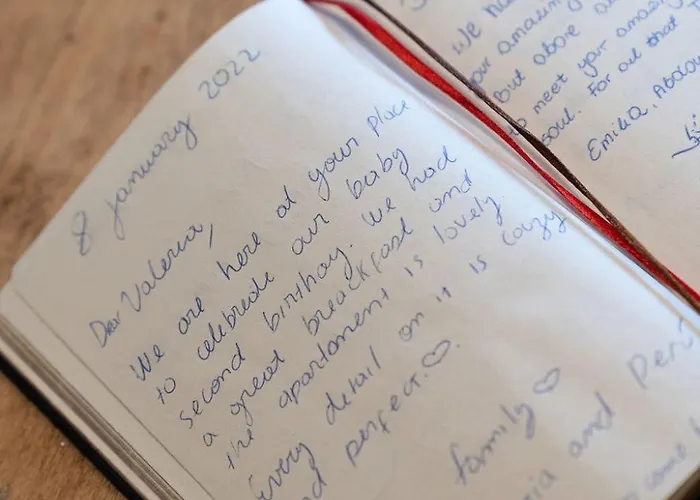 8 january 2022
Dear Valeria,
We are here at your place
to celebrate our baby
second birthay. We had
a great breackfast and
the apartament is lovely.
Every detail on it is cowzy
nd perfect. ♡.
family ♡
ria and
some
We ha
our amazing
but above al
to meet your amazin
soul. For all that
Emilia, Abdou